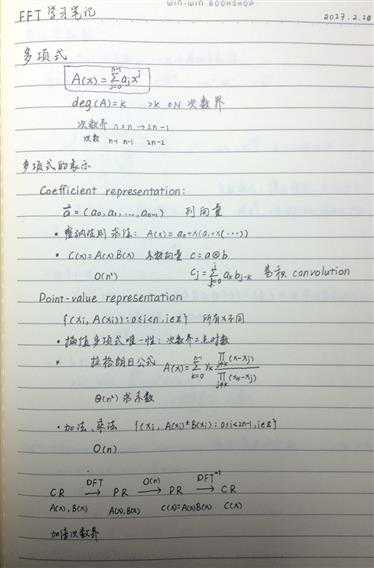 win-win BOOKSHOP
FFT 学习笔记 2017.2.20
多项式
A(x)=∑_{j=0}^{n-1} a_j x^j
deg(A)=k >k 的 N 次数界
次数界 n+n → 2n-1
次数 n-1 n-1 2n-2
多项式的表示
Coefficient representation:
a⃗ = (a₀, a₁, ..., aₙ₋₁) 列向量
• 霍纳法则 求值: A(x) = a₀+x(a₁+x(...))
• C(x)=A(x)B(x) 系数向量 c=a⊗b
O(n²) c_j=∑_{k=0}^{j} a_k b_{j-k} 卷积 convolution
Point-value representation
{(xᵢ, A(xᵢ)): 0≤i<n, i∈Z} 所有 x 不同
• 插值多项式唯一性: 次数界=点对数
• 拉格朗日公式 A(x)=∑_{k=0}^{n-1} y_k ∏_{j≠k}(x-x_j) / ∏_{j≠k}(x_k-x_j)
Θ(n²) 求系数
• 加法、乘法 {(xᵢ, A(xᵢ)*B(xᵢ)): 0≤i<2n-1, i∈Z}
O(n)
CR DFT→ PR O(n)→ PR DFT⁻¹→ CR
A(x), B(x) A(x), B(x) C(x)=A(x)B(x) C(x)
加倍次数界